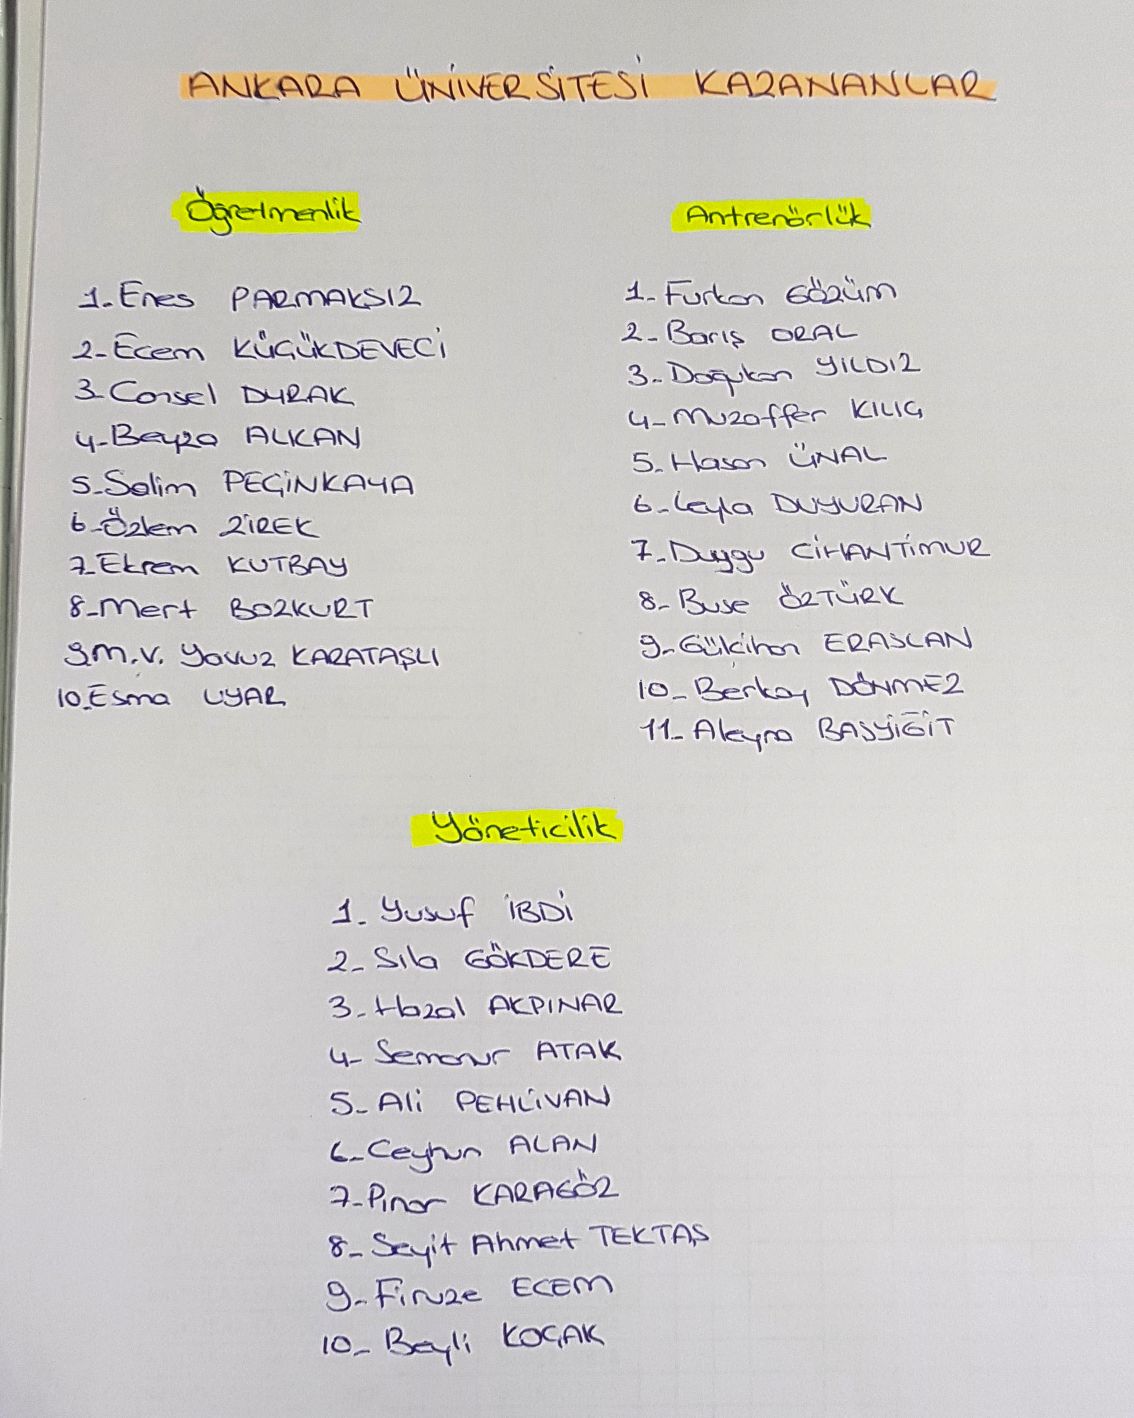 ANKARA ÜNİVERSİTESİ KAZANANLAR
Öğretmenlik
1-Enes PARMAKSIZ
2-Ecem KÜÇÜKDEVECİ
3-Cansel DURAK
4-Beyza ALKAN
5-Selim PEÇİNKAYA
6-Özlem ZİREK
7-Ekrem KUTBAY
8-Mert BOZKURT
9.M.V. Yavuz KARATAŞLI
10.Esma UYAR
Antrenörlük
1-Furkan GÖZÜM
2-Barış ORAL
3-Doğukan YILDIZ
4-Muzaffer KILIÇ
5-Hasan ÜNAL
6-Leyla DUYURAN
7-Duygu CİHANTİMUR
8-Buse ÖZTÜRK
9-Gülcihan ERASLAN
10-Berkay DÖNMEZ
11-Aleyna BAŞYİĞİT
Yöneticilik
1-Yusuf İBDİ
2-Sıla GÖKDERE
3-Hazal AKPINAR
4-Semanur ATAK
5-Ali PEHLİVAN
6-Ceyhun ALAN
7-Pınar KARAGÖZ
8-Seyit Ahmet TEKTAŞ
9-Firuze ECEM
10-Beyli KOÇAK